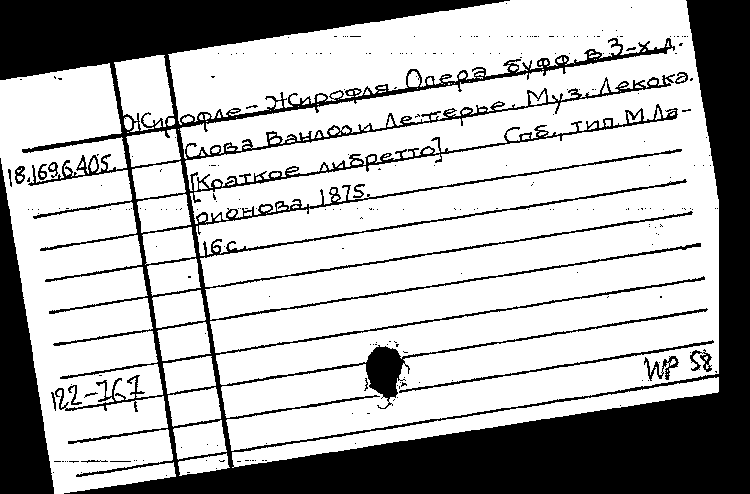 Жирофле-Жирофля. Опера буфф. в 3-х. д.
Слова Ванлоо и Летерье. Муз. Лекока.
18.169.6.405.
[Краткое либретто]. Спб., тип. М. Ла-
рионова, 1875.
16 с.
122-767
WP 58